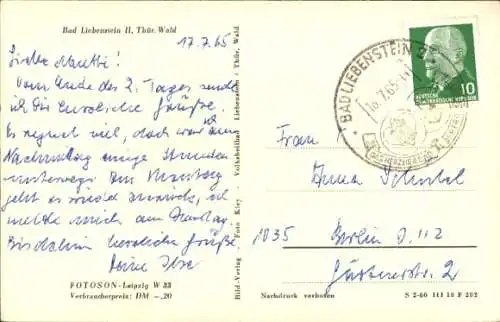 Bad Liebenstein II, Thür. Wald
17.7.65
Liebe Mutti!
Vom Ende des 2. Tages sende
ich Dir herzliche Grüße.
Es regnet viel, doch war ich
Nachmittag einige Stunden
unterwegs. Am Montag
geht es wieder zurück, ich
melde mich am Dienstag.
Bis dahin herzliche Grüße.
Deine Ilse
FOTOSON-Leipzig W 33
Verbraucherpreis: DM -,20
Bild-Verlag Foto Kley Volksheilbad Liebenstein / Thür. Wald
BAD LIEBENSTEIN
18.7.65
DEUTSCHE
DEMOKRATISCHE REPUBLIK
10
Frau
Anna
1035 Berlin O. 112
Gärtnerstr. 2
Nachdruck verboten
S 2-60 111 18 F 202